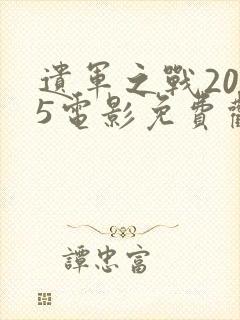 遺軍之戰20
5電影免費
譚忠富